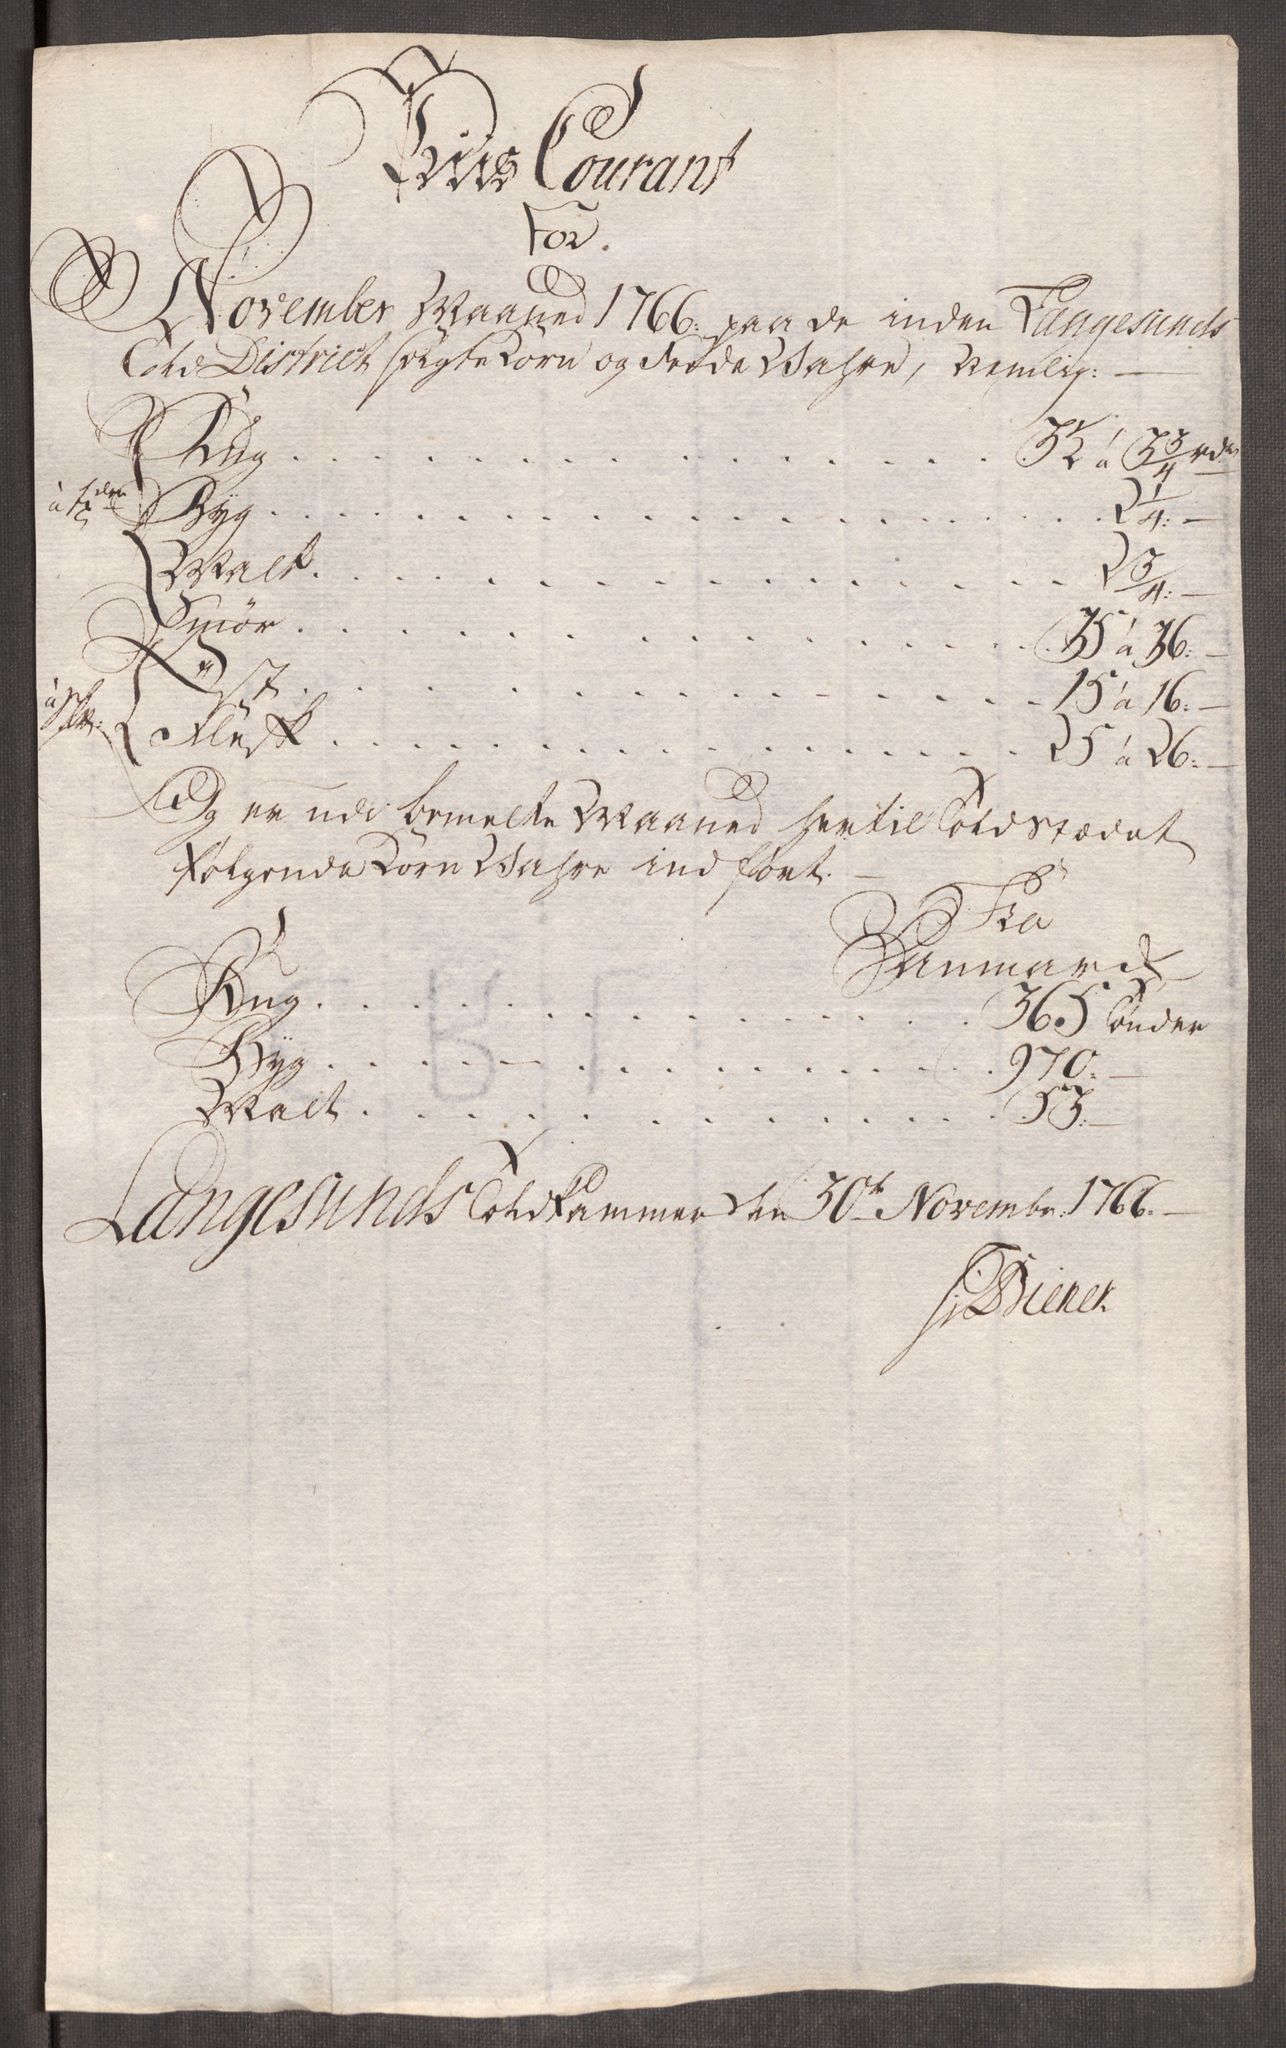 Priis Courant
For.
November Maaned 1766. paa de inden Langesunds
Told District solgte Korn og Fede Vahre, Nemlig: —
Rug . . . 3½ á 3¾ rdr
à tdr Byg . . . 2¼: —
Malt . . . 2¾: —
Smör . . . 35 á 36: —
Ost . . . 15 á 16: —
à Flesk . . . 25 á 26: —
Og er udi bemelte Maaned her til Told Stædet
følgende Korn Vahre ind ført. —
Fra
Danmark
Rug . . . 365 Tönder
Byg . . . 970: —
Malt . . . 53: —
Langesunds Told Kammer den 30te Novembr: 1766. —